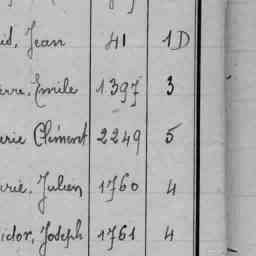 id, Jean 41 1D
erre, Emile 1.397 3
erie Clément 2249 5
arie, Julien 1760 4
ictor, Joseph 1761 4